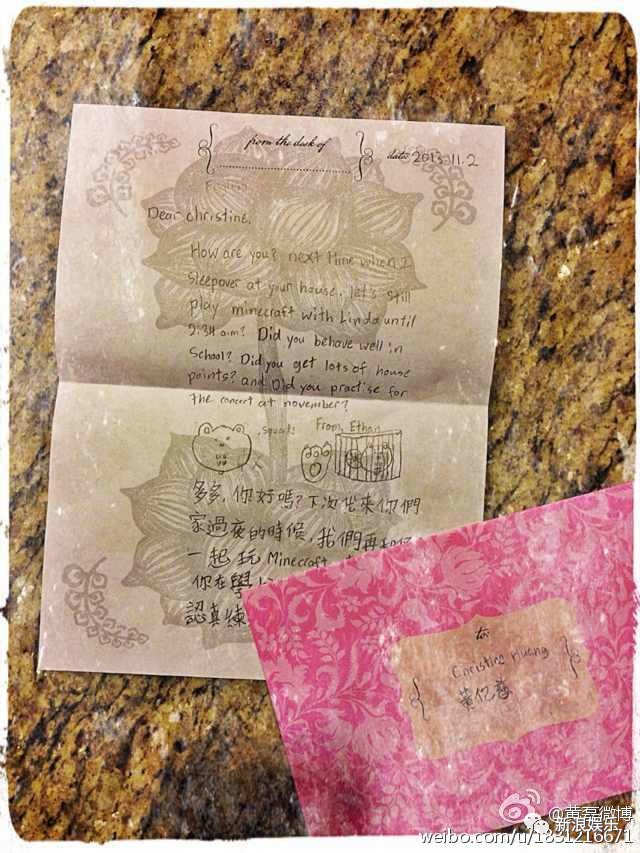 from the desk of
date: 2013.11.2
Dear Christine,
How are you? next time when I
sleepover at your house, let's still
play minecraft with Linda until
2:34 a.m? Did you behave well in
School? Did you get lots of house
points? and Did you practise for
the concert at november?
From, Ethan
多多,你好嗎?下次我來你們
家過夜的時候,我們再和
一起玩 Minecraft
你在學
認真練
to:
Christine Huang
黄忆慈
@黄磊微博
新浪娱乐
weibo.com/u/1831216671